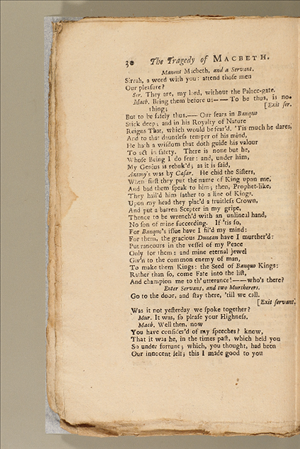 30 The Tragedy of MACBETH.
Manent Macbeth, and a Servant.
Sirrah, a word with you: attend those men
Our pleasure?
Ser. They are, my lord, without the Palace-gate.
Macb. Bring them before us—— To be thus, is no-
thing; [Exit ser.
But to be safely thus.—— Our fears in Banquo
stick deep; and in his Royalty of Nature
Reigns That, which would be fear'd. 'Tis much he dares,
And to that dauntless temper of his mind,
He hath a wisdom that doth guide his valour
To act in safety. There is none but he,
Whose Being I do fear: and, under him,
My Genius is rebuk'd; as it is said,
Antony's was by Cæsar. He chid the Sisters,
When first they put the name of King upon me,
And bad them speak to him; then, Prophet-like,
They hail'd him father to a line of Kings.
Upon my head they plac'd a fruitless Crown,
And put a barren Scepter in my gripe,
Thence to be wrench'd with an unlineal hand,
No son of mine succeeding. If 'tis so,
For Banquo's issue have I fil'd my mind;
For them, the gracious Duncan have I murther'd:
Put rancours in the vessel of my Peace
Only for them: and mine eternal jewel
Giv'n to the common enemy of man,
To make them Kings: the Seed of Banquo Kings:
Rather than so, come Fate into the list,
And champion me to th' utterance!——who's there?
Enter Servant, and two Murtherers.
Go to the door, and stay there, 'till we call.
[Exit servant.
Was it not yesterday we spoke together?
Mur. It was, so please your Highness.
Macb. Well then, now
You have consider'd of my speeches? know,
That it was he, in the times past, which held you
So under fortune; which, you thought, had been
Our innocent self; this I made good to you